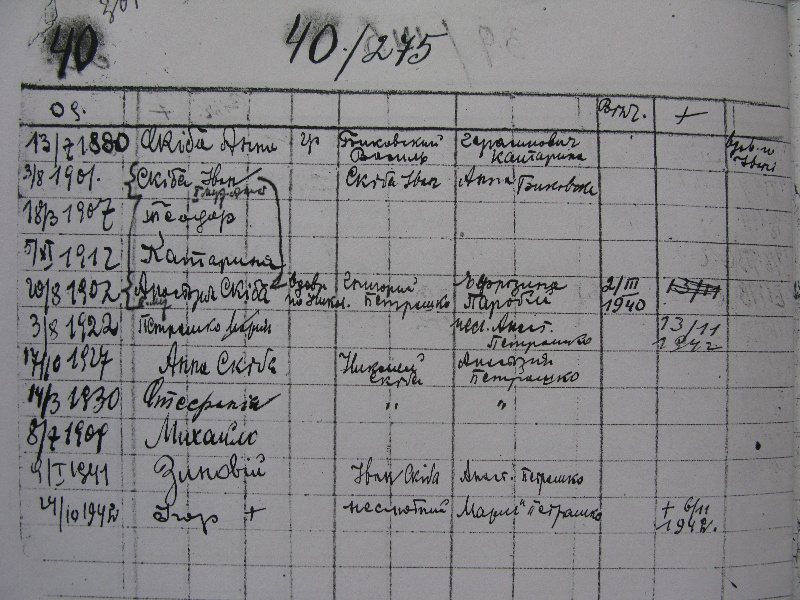 40 40./275
ВІНЧ. +
13/7 1880 Скіба Анна гр Биковский Василь Гарасимович Катарина
3/8 1901. Скіба Іван Скіба Іван Анна Биковска
18/3 1907 Теодор
5/XI 1912 Катарина
20/8 1902 Анастазия Скіба Григорий Петрашко Ефрозина Паробій 2/III 1940 13/11
3/8 1922 Петрашко Мария несл. Анаст. Петрашко 13/11 1942
17/10 1927 Анна Скіба Николай Скіба Анастазия Петрашко
14/3 1930 Стефанія " "
8/7 1909 Михайло
9/I 1941 Зиновій Іван Скіба Анаст. Петрашко
24/10 1942 Ігор + неслюбний Мария Петрашко + 6/11 1942.